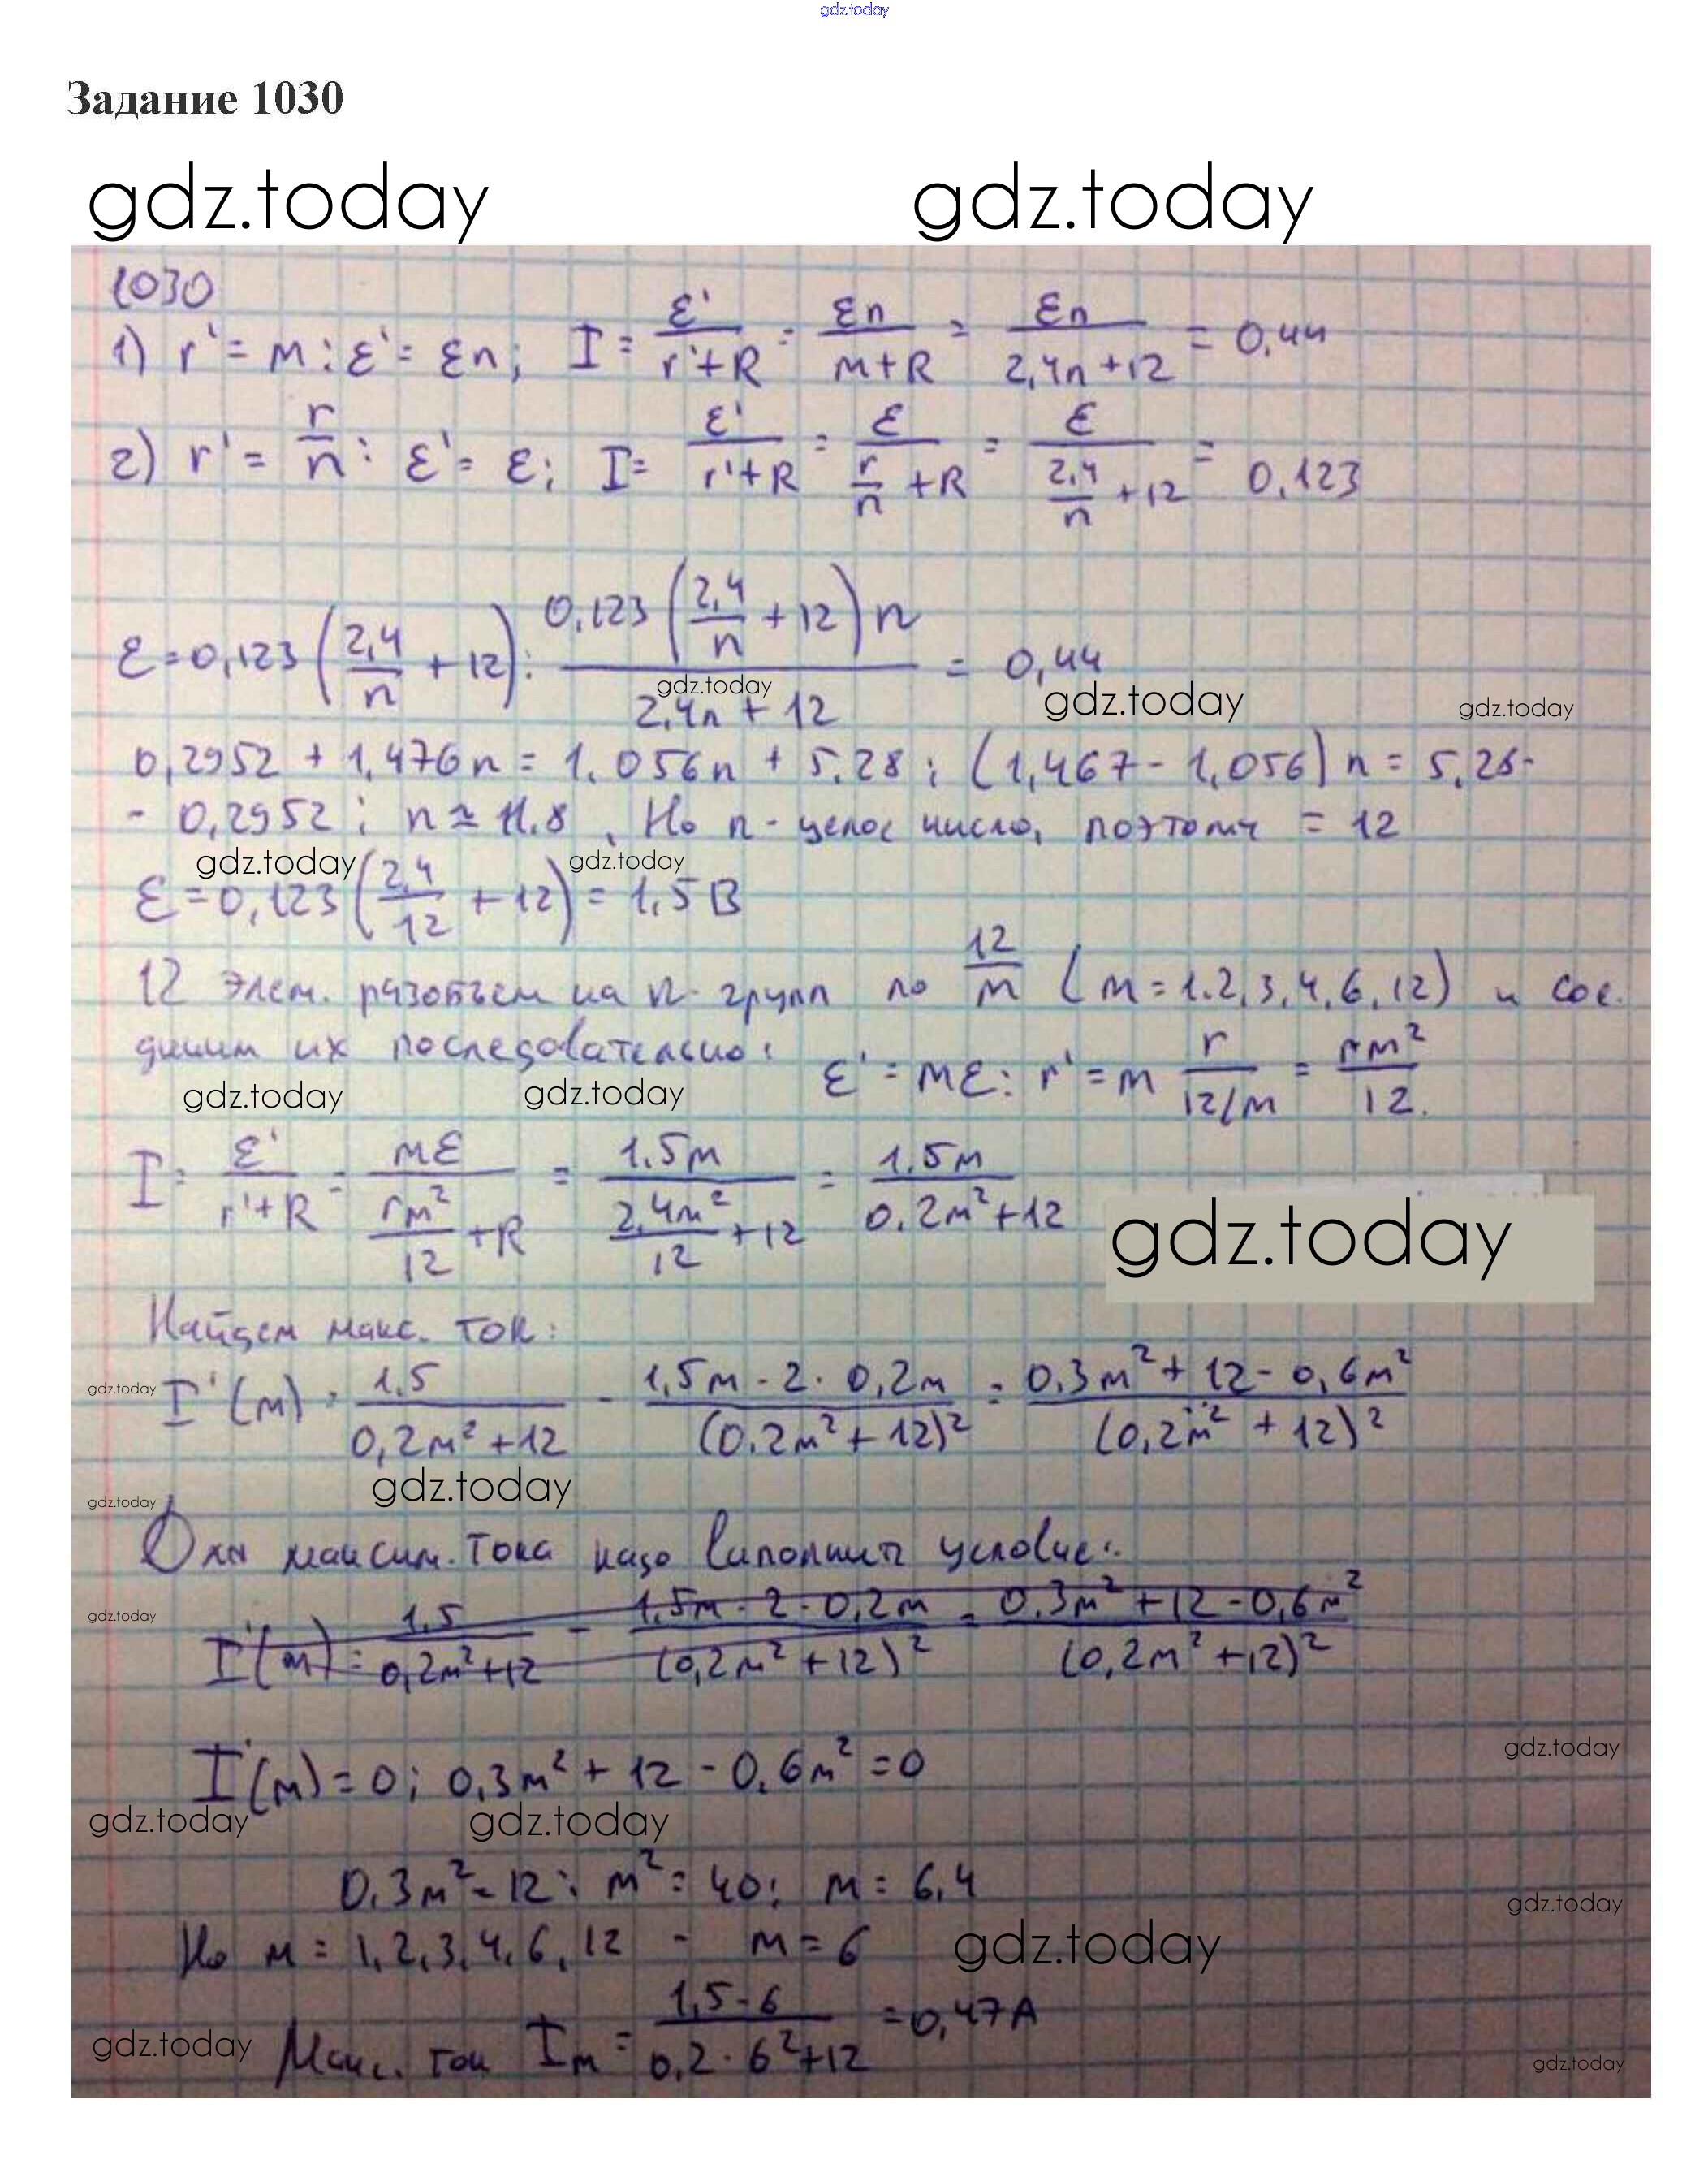 gdz.today
Задание 1030
gdz.today gdz.today
1030
1) r' = m; ε' = εn; I = ε'/(r'+R) = εn/(m+R) = εn/(2,4n+12) = 0,44
2) r' = r/n; ε' = ε; I = ε'/(r'+R) = ε/(r/n + R) = ε/(2,4/n + 12) = 0,123
ε = 0,123 (2,4/n + 12); 0,123 (2,4/n + 12) n / (2,4n + 12) = 0,44
gdz.today gdz.today gdz.today
0,2952 + 1,476n = 1,056n + 5,28; (1,467 - 1,056) n = 5,28-
- 0,2952; n ≈ 11,8, Но n - целое число, поэтому = 12
gdz.today gdz.today
ε = 0,123 (2,4/12 + 12) = 1,5 В
12 элем. разобьем на n групп по 12/m (m = 1,2,3,4,6,12) и сое-
диним их последовательно: ε' = mε; r' = m r/(12/m) = rm²/12.
gdz.today gdz.today
I = ε'/(r'+R) = mε/(rm²/12 + R) = 1,5m/(2,4m²/12 + 12) = 1,5m/(0,2m²+12)
gdz.today
Найдем макс. ток:
gdz.today I'(m) = 1,5/(0,2m²+12) - 1,5m·2·0,2m/(0,2m²+12)² = 0,3m²+12-0,6m²/(0,2m²+12)²
gdz.today
gdz.today
Для максим. тока надо выполнить условие:
gdz.today I'(m) = 1,5/(0,2m²+12) - 1,5m·2·0,2m/(0,2m²+12)² = 0,3m²+12-0,6m²/(0,2m²+12)²
gdz.today
I'(m) = 0; 0,3m² + 12 - 0,6m² = 0
gdz.today gdz.today
0,3m² = 12; m² = 40; m = 6,4
gdz.today
Но m = 1,2,3,4,6,12 - m = 6
gdz.today
Макс. ток Iм = 1,5·6/(0,2·6²+12) = 0,47 А
gdz.today gdz.today